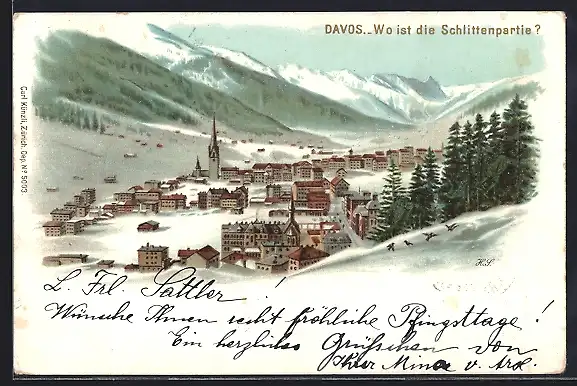 DAVOS... Wo ist die Schlittenpartie?
Carl Künzli, Zürich. Dep. Nº 5003.
H.S.
L. Frl. Sattler!
Wünsche Ihnen recht fröhliche Pfingsttage!
Ein herzliches Grüsschen von
Ihrer Minca v. Arx.